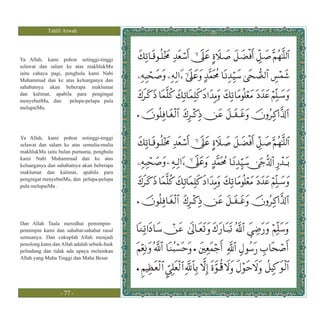 Tahlil Arwah
Ya Allah, kami pohon setinggi-tinggi
selawat dan salam ke atas makhlukMu
iaitu cahaya pagi, penghulu kami Nabi
Muhammad dan ke atas keluarganya dan
sahabatnya akan beberapa maklumat
dan kalimat, apabila para pengingat
menyebutMu, dan pelupa-pelupa pula
melupaiMu.
Ya Allah, kami pohon setinggi-tinggi
selawat dan salam ke atas semulia-mulia
makhlukMu iaitu bulan purnama, penghulu
kami Nabi Muhammad dan ke atas
keluarganya dan sahabatnya akan beberapa
maklumat dan kalimat, apabila para
pengingat menyebutMu, dan pelupa-pelupa
pula melupaiMu .
Dan Allah Taala meredhai pemimpin-
pemimpin kami dan sahabat-sahabat rasul
semuanya. Dan cukuplah Allah menjadi
penolong kami dan Allah adalah sebaik-baik
pelindung dan tidak ada upaya melainkan
Allah yang Maha Tinggi dan Maha Besar.
اَللّٰهُمَّ صَلِّ أَفْضَلَ صَلَاةٍ عَلَىٰ أَسْعَدِ مَخْلُوقَاتِكَ
شَمْسِ الضُّحَىٰ سَيِّدِنَا مُحَمَّدٍ وَعَلَىٰ آلِهِ وَصَحْبِهِ
وَسَلِّمْ عَدَدَ مَعْلُومَاتِكَ وَمِدَادَ كَلِمَاتِكَ كُلَّمَا ذَكَرَكَ
الذَّاكِرُونَ وَغَفَلَ عَنْ ذِكْرِكَ الْغَافِلُونَ .
اَللّٰهُمَّ صَلِّ أَفْضَلَ صَلَاةٍ عَلَىٰ أَسْعَدِ مَخْلُوقَاتِكَ
بَدْرِ الدُّجَىٰ سَيِّدِنَا مُحَمَّدٍ وَعَلَىٰ آلِهِ وَصَحْبِهِ
وَسَلِّمْ عَدَدَ مَعْلُومَاتِكَ وَمِدَادَ كَلِمَاتِكَ كُلَّمَا ذَكَرَكَ
الذَّاكِرُونَ وَغَفَلَ عَنْ ذِكْرِكَ الْغَافِلُونَ .
وَسَلِّمْ وَرَضِيَ اللّٰهُ تَبَارَكَ وَتَعَالَىٰ عَنْ سَادَاتِنَا
أَصْحَابِ رَسُولِ اللّٰهِ أَجْمَعِينَ ، وَحَسْبُنَا اللّٰهُ وَنِعْمَ
الْوَكِيلُ وَلَا حَوْلَ وَلَا قُوَّةَ إِلَّا بِاللّٰهِ الْعَلِيِّ الْعَظِيمِ .
- 77 -